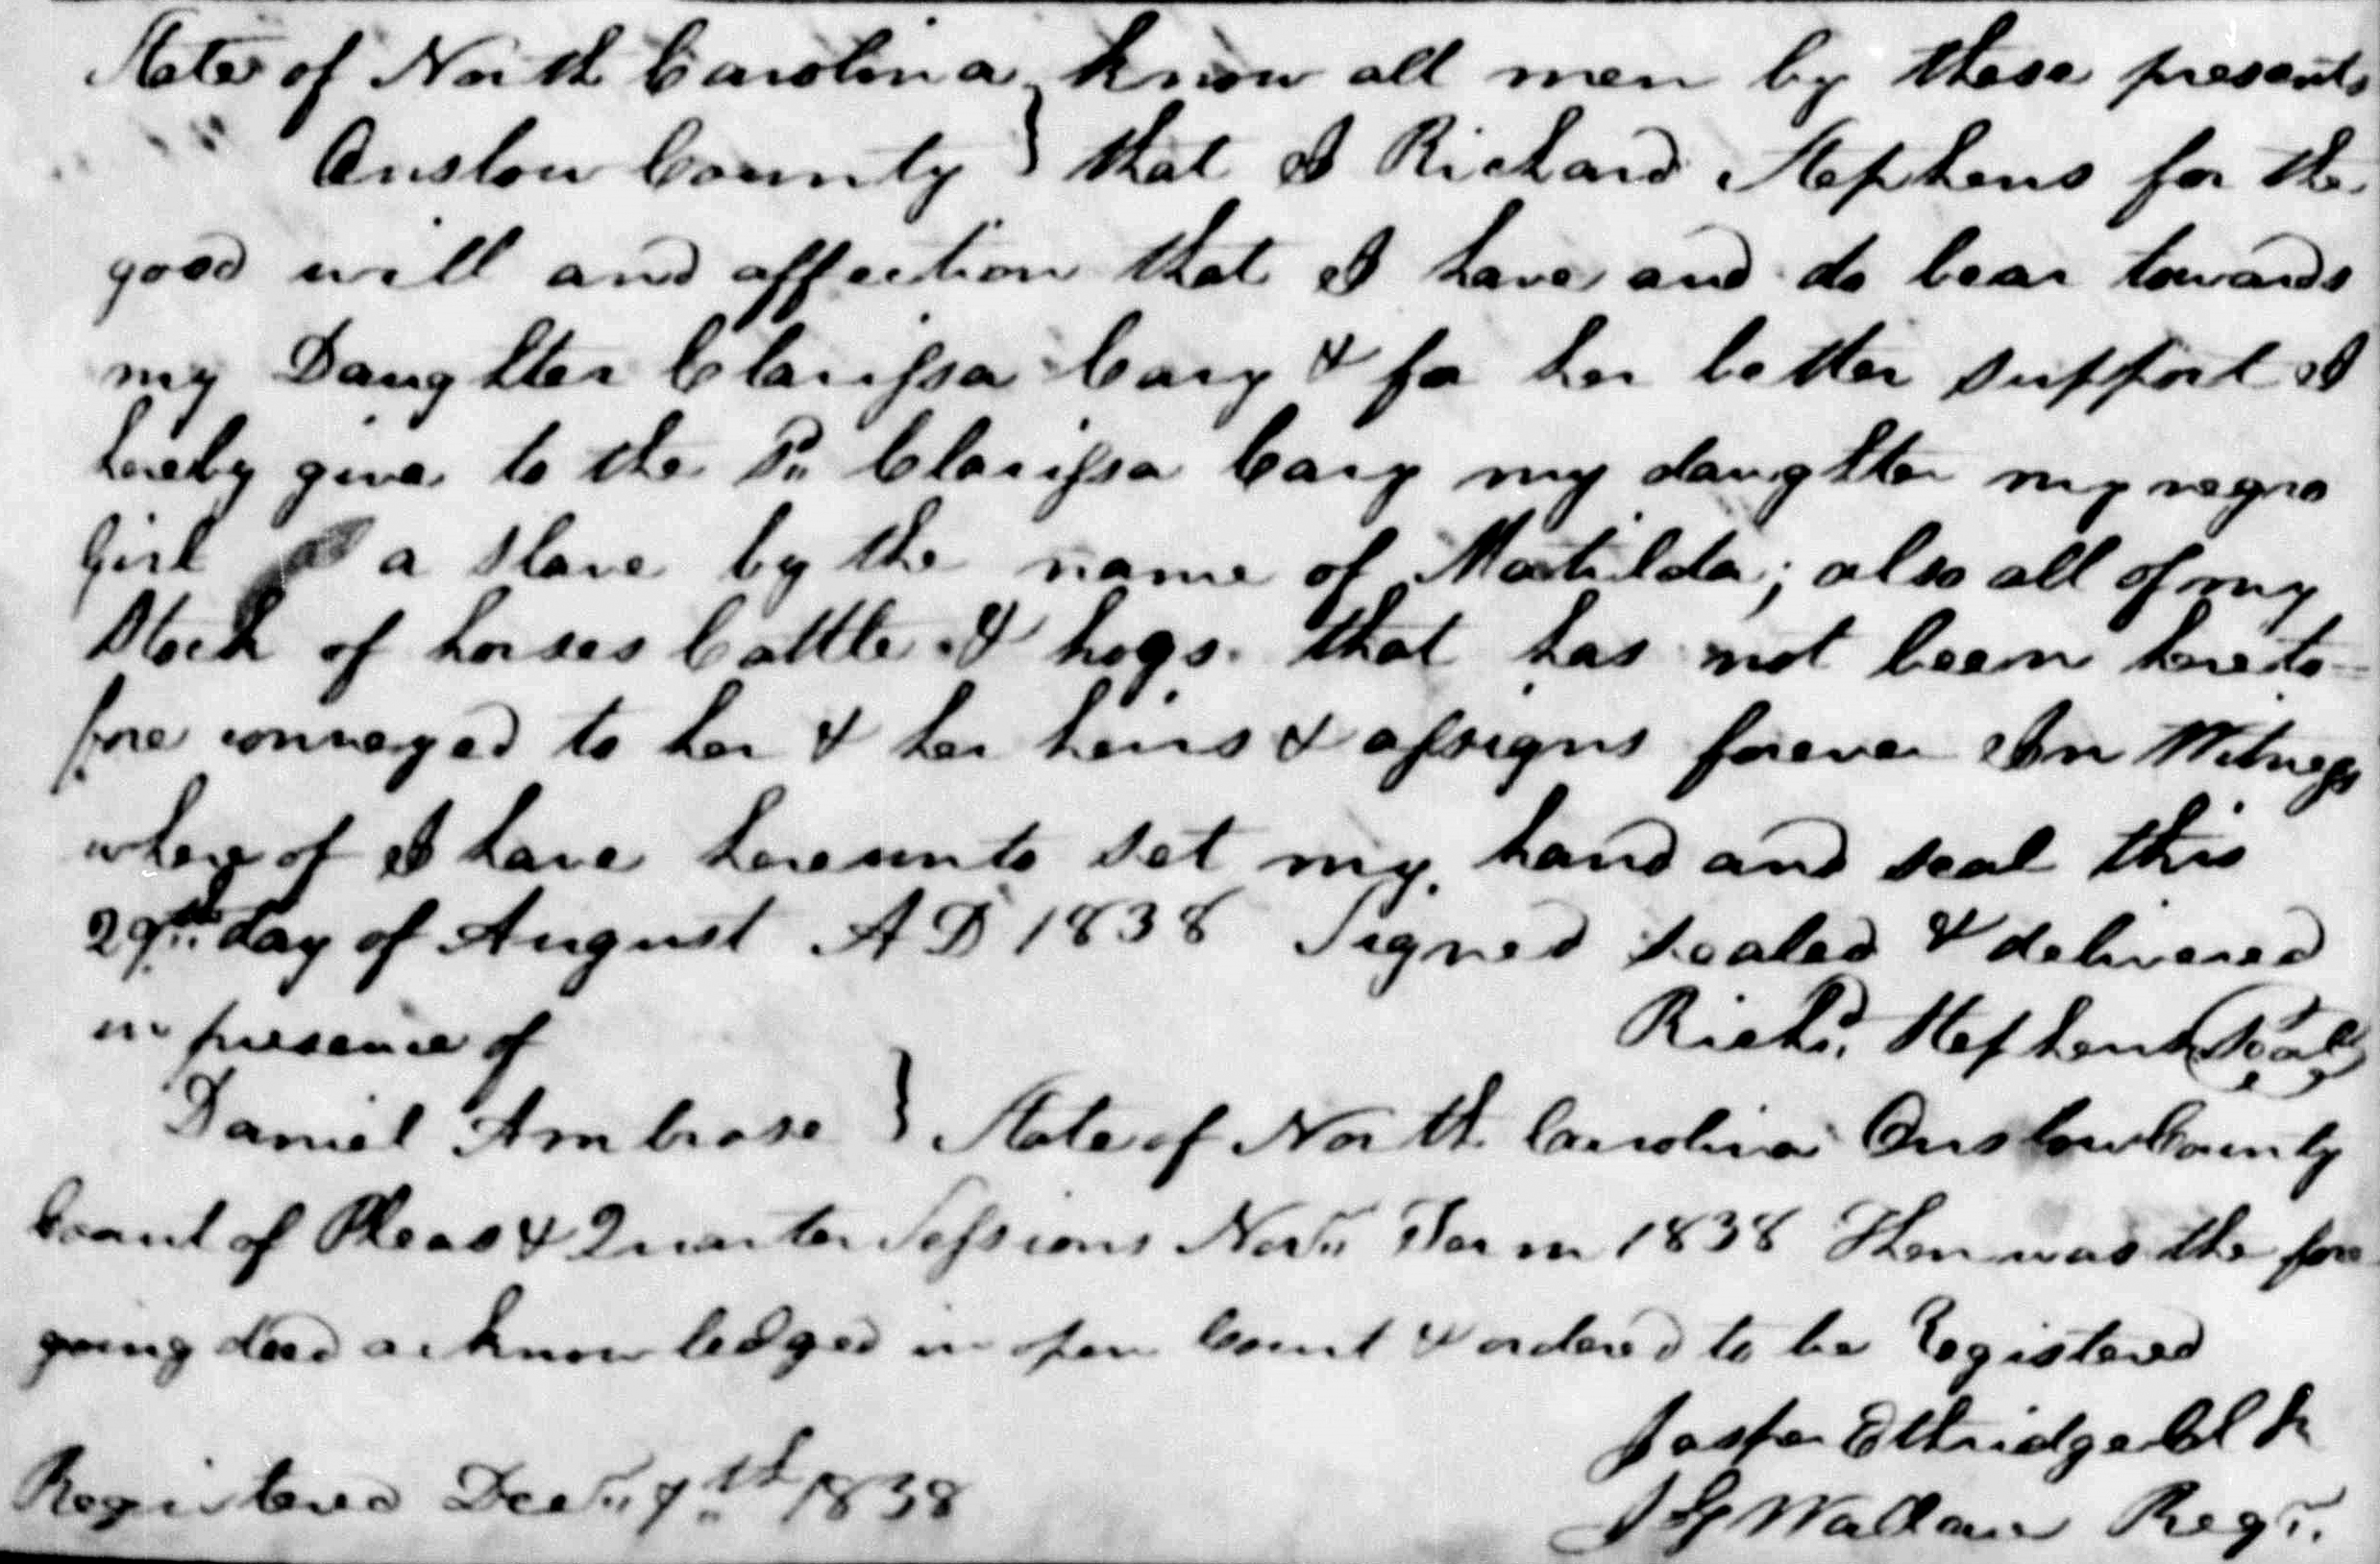 State of North Carolina } know all men by these presents
Onslow County } that I Richard Stephens for the
good will and affection that I have and do bear towards
my Daughter Clarissa Cary & for her better support I
hereby give to the Sd Clarissa Cary my daughter my negro
Girl a slave by the name of Matilda; also all of my
Stock of horses Cattle & hogs that has not been hereto-
fore conveyed to her & her heirs & assigns forever In Witness
where of I have hereunto set my hand and seal this
29th day of August A D 1838 Signed sealed & delivered
in presence of Richd. Stephens Seal
Daniel Ambrose } State of North Carolina Onslow County
Court of Pleas & Quarter Sessions Novr Term 1838 Then was the fore
going deed acknowledged in open Court & ordered to be Registered
Jasper Ethridge Cl k
Registered Decr 7th 1838 Wallace Regr.